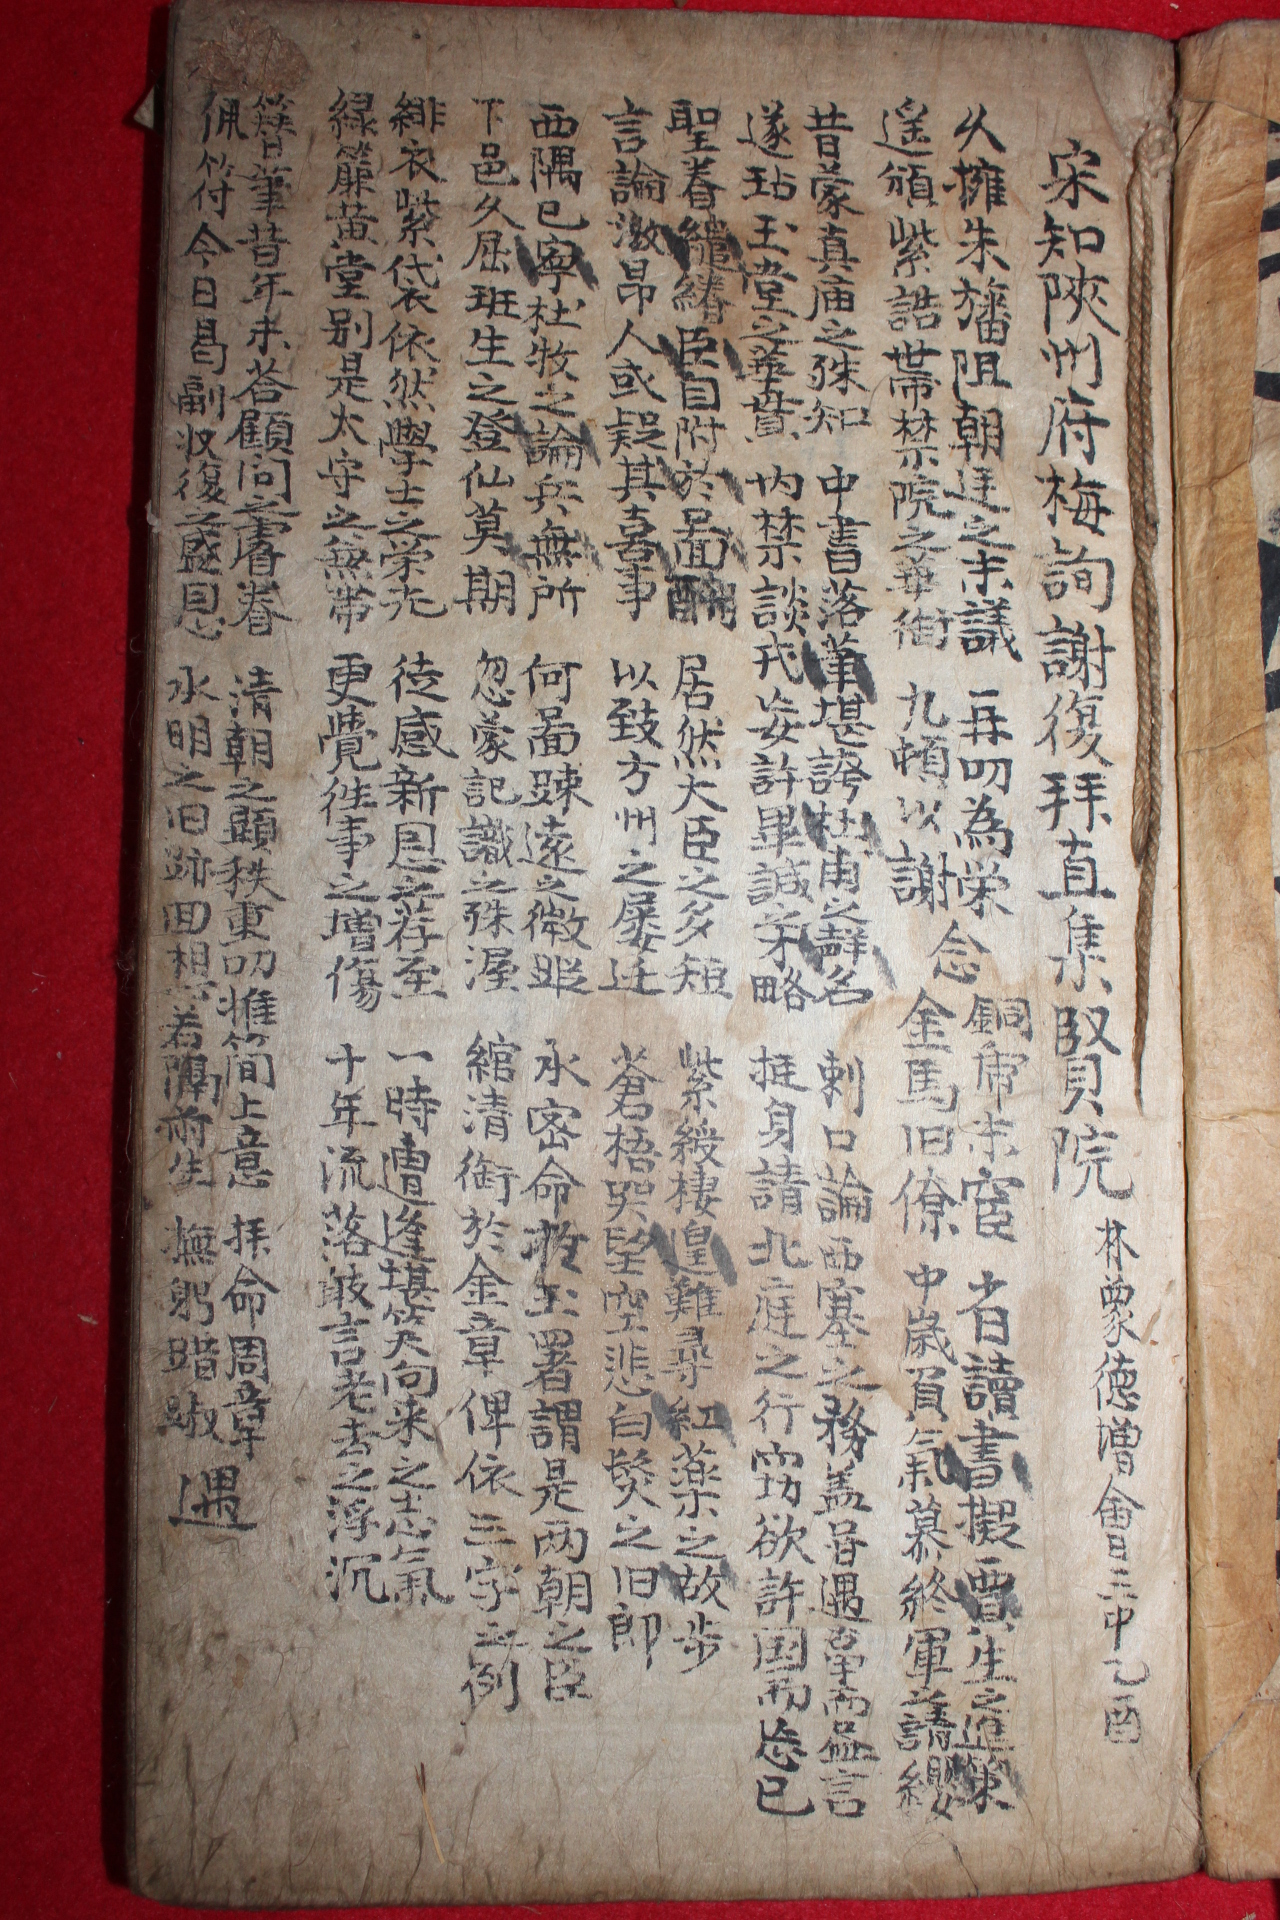 宋知陜州府梅詢謝復拜直集賢院 林象德增會三中乙酉
久擁朱旛阻朝廷之末議 再叨為栄 念銅虎末宦 省讀書擬賈生之進策
遙頒紫誥帶禁院之華銜 九頓以謝 金馬旧僚 中歲負氣慕終軍之請纓
昔蒙真庙之殊知 中書落筆堪誇杜甫之辭名 刺口論西塞之務盖昔遇留而益言
遂玷玉堂之華貫 内禁談戎妄許畢諴之才略 挺身請北庭之行窃欲許国而忘已
聖眷繾綣臣自附於啚酬 居然大臣之多短 紫綬棲皇難尋紅藥之故步
言論激昂人或疑其喜事 以致方州之屡迁 蒼梧哭望空悲白鬂之旧郎
西隅已寧杜牧之論兵無所 何啚踈遠之微蹤 承密命於玉署謂是两朝之臣
下邑久屈班生之登仙莫期 忽蒙記識之殊渥 綰清銜於金章俾依三字之例
緋衣紫袋依然學士之栄光 徒感新恩之荐至 一時遭逢堪笑向来之志氣
緑簾黄堂别是太守之無㡌 更覺徃事之增傷 十年流落敢言老去之浮沉
簪筆昔年未荅顧问之睿眷 清朝之顯秩重叨推簡上意 拜命周章
佩符今日曷副收復之盛恩 氷明之旧跡回想若隔前生 撫躬踖踧 遇